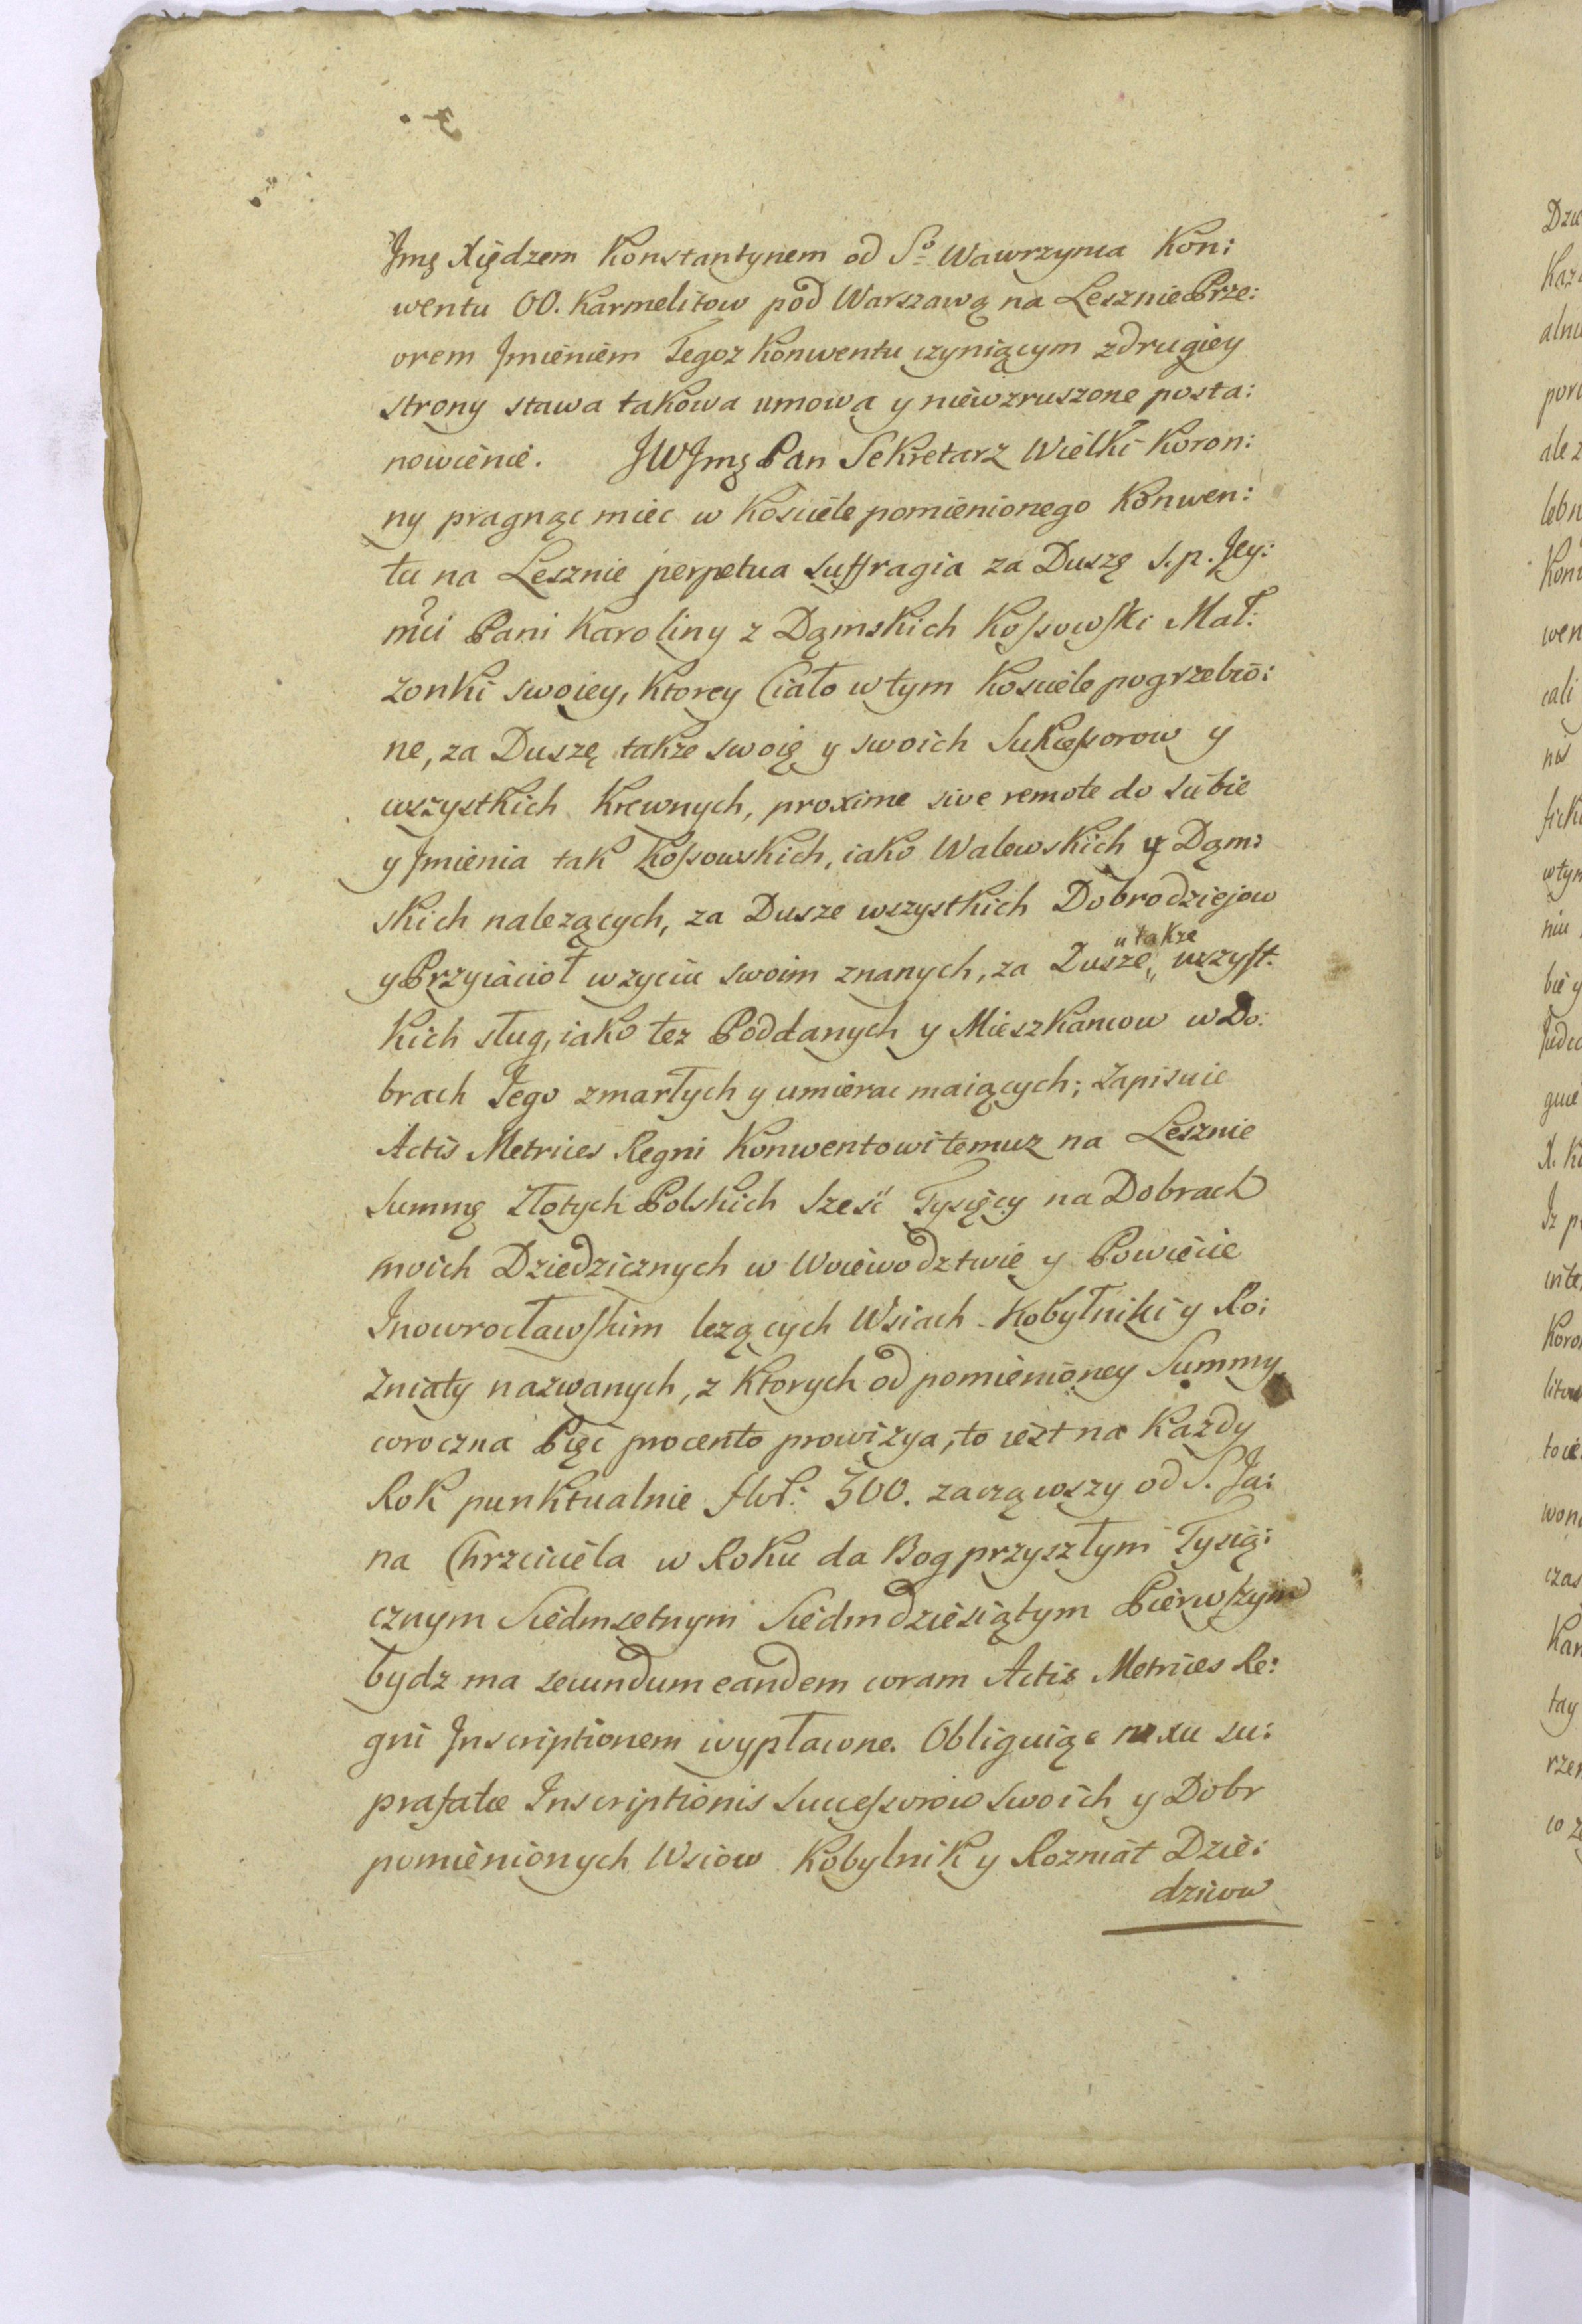 Jmę Xiędzem Konstantynem od Sº Wawrzynia Kon:
wentu OO. Karmelitow pod Warszawą na Lesznie Prze:
orem Jmieniem Tegoz Konwentu czyniącym z drugiey
strony stawa takowa umowa y niewzruszone posta:
nowienie. JWJmę Pan Sekretarz Wielki Koron:
ny pragnąc miec w Kosciele pomienionego Konwen:
tu na Lesznie perpetua suffragia za Duszę s.p. Jey:
mci Pani Karoliny z Dąmskich Kossowski Mał:
zonki swoiey, Ktorey Ciało w tym Kosciele pogrzebio:
ne, za Duszę takze swoię y swoich Sukcessorow y
wszystkich Krewnych, proxime sive remote do siebie
y Jmienia tak Kossowskich, iako Walewskich y Dąm:
skich nalezących, za Dusze wszystkich Dobrodziejow
y Przyiacioł w zyciu swoim znanych, za Dusze "takze" wszyst.
kich sług, iako tez Poddanych y Mieszkancow w Do:
brach Jego zmarłych y umierac maiących; Zapisuie
Actis Metrices Regni Konwentowi temuz na Lesznie
Summę Złotych Polskich Szesć Tysięcy na Dobrach
moich Dziedzicznych w Woiewodztwie y Powiecie
Jnowrocławskim lezących Wsiach Kobylniki y Ro:
zniały nazwanych, z Ktorych od pomienioney Summy
coroczna Pięć procento prowizya, to iest na Kazdy
Rok punktualnie flor: 300. zacząwszy od S. Ja:
na Chrzciciela w Roku da Bog przyszłym Tysią:
cznym Siedmsetnym Siedmdziesiątym Pierwszym
bydz ma secundum eandem coram Actis Metrices Re:
gni Jnscriptionem wypłacone. Obliguiąc nexu su:
prafatæ Inscriptionis Successorow swoich y Dobr
pomienionych Wsiow Kobylnik y Rozniat Dzie:
dzicow